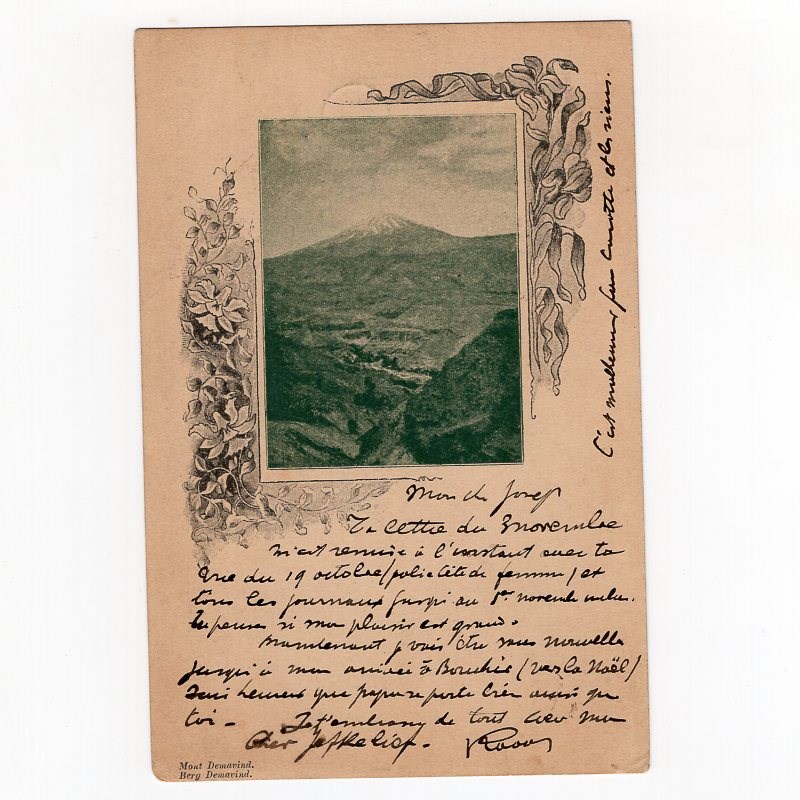 Mon ch Josef
Ta lettre du 3 novembre
m'est remise à l'instant avec ta
vue du 19 octobre (polie tête de femme) et
tous les journaux jusqu'au 1er novembre inclus.
Tu penses si mon plaisir est grand.
Maintenant je vais être sans nouvelle
jusqu'à mon arrivée à (vers la Noël)
Suis heureux que papa se porte bien ainsi que
toi - Je t'embrasse de tout cœur mon
cher
C'est malheureux pour et les siens.
Mont Demavind.
Berg Demavind.